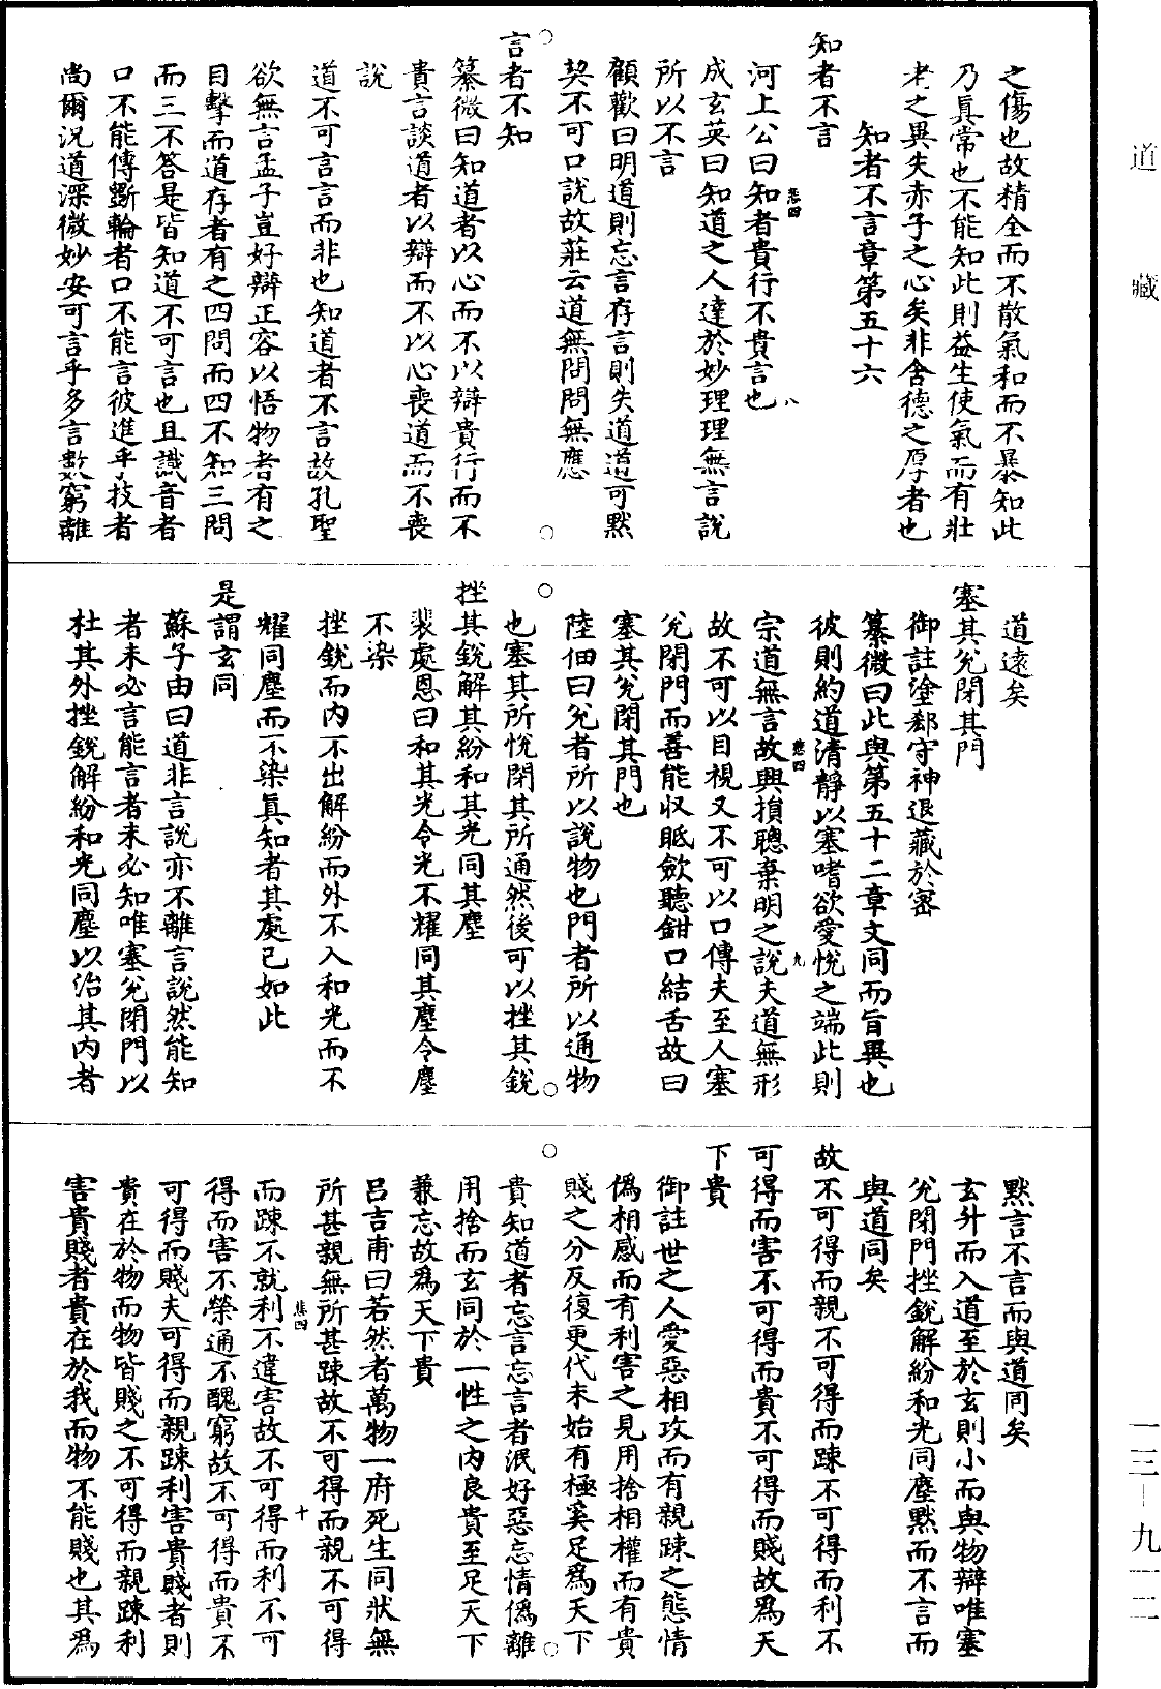 道藏
之傷也故精全而不散氣和而不暴知此
乃眞常也不能知此則益生使氣而有壯
老之異失赤子之心矣非含德之厚者也
知者不言章第五十六
知者不言
悲四
八
河上公曰知者貴行不貴言也
成玄英曰知道之人達於妙理理無言說
所以不言
顧歡曰明道則忘言存言則失道道可默
契不可口說故莊云道無問問無應
言者不知
纂微曰知道者以心而不以辯貴行而不
貴言談道者以辯而不以心喪道而不喪
說
道不可言言而非也知道者不言故孔聖
欲無言孟子豈好辯正容以悟物者有之
目擊而道存者有之四問而四不知三問
而三不答是皆知道不可言也且識音者
口不能傳斲輪者口不能言彼進乎技者
尚爾況道深微妙安可言乎多言數窮離
道遠矣
塞其兌閉其門
御註塗郄守神退藏於密
纂微曰此與第五十二章文同而旨異也
彼則約道清靜以塞嗜欲愛悅之端此則
悲四
九
宗道無言故興損聰棄明之說夫道無形
故不可以目視又不可以口傳夫至人塞
兌閉門而善能収眡歛聽鉗口結舌故曰
塞其兌閉其門也
陸佃曰兌者所以說物也門者所以通物
也塞其所悅閉其所通然後可以挫其銳
挫其銳解其紛和其光同其塵
裴處恩曰和其光令光不耀同其塵令塵
不染
挫銳而內不出解紛而外不入和光而不
耀同塵而不染眞知者其處已如此
是謂玄同
蘇子由曰道非言說亦不離言說然能知
者未必言能言者未必知唯塞兌閉門以
杜其外挫銳解紛和光同塵以治其內者
默言不言而與道同矣
玄升而入道至於玄則小而與物辯唯塞
兌閉門挫銳解紛和光同塵默而不言而
與道同矣
故不可得而親不可得而踈不可得而利不
可得而害不可得而貴不可得而賤故爲天
下貴
御註世之人愛惡相攻而有親踈之態情
僞相感而有利害之見用捨相權而有貴
賤之分反復更代未始有極奚足爲天下
貴知道者忘言忘言者泯好惡忘情僞離
用捨而玄同於一性之內良貴至足天下
兼忘故爲天下貴
呂吉甫曰若然者萬物一府死生同狀無
所甚親無所甚踈故不可得而親不可得
悲四
十
而踈不就利不違害故不可得而利不可
得而害不榮通不醜窮故不可得而貴不
可得而賤夫可得而親踈利害貴賤者則
貴在於物而物皆賤之不可得而親踈利
害貴賤者貴在於我而物不能賤也其爲
一三—九一二